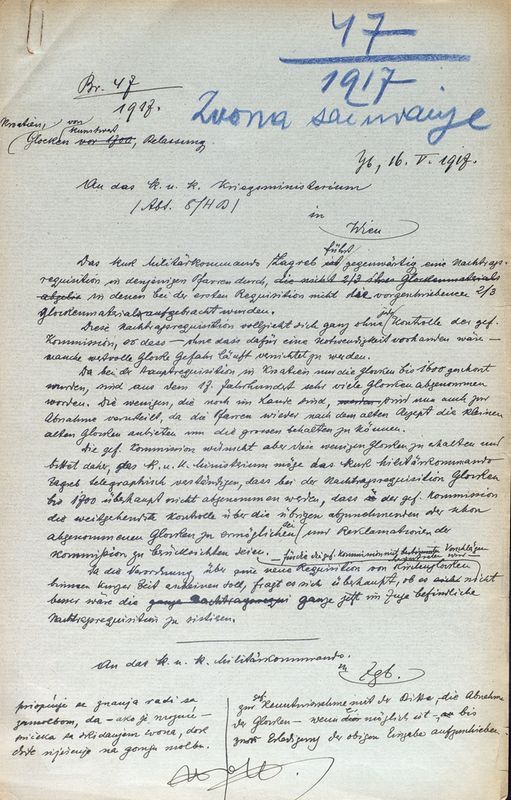 47
1917
Zvona sačuvanje
Br. 47
1917.
Kroatien, von
Kunstwert
Glocken vor 1700, Belassung
Zgb, 16. V. 1917.
An das K. u. K. Kriegsministerium
/Abt. 8/HB/
in
Wien
führt
Das kuk Militärkommando Zagreb ist gegenwärtig eine Nachtrags-
requisition in denjenigen Pfarren durch, die nicht 2/3 ihres Glockenmaterials
in denen bei der ersten Requisition nicht die vorgeschriebenen 2/3
Glockenmaterial aufgebracht wurden.
Diese Nachtragsrequisition vollzieht sich ganz ohne jede Kontrolle der gef.
Kommission, so dass – ohne dass dafür eine Notwendigkeit vorhanden wäre –
manche wertvolle Glocke Gefahr läuft vernichtet zu werden.
Da bei der Hauptrequisition in Kroatien nur die Glocken bis 1600 geschont
wurden, sind aus dem 17. Jahrhundert sehr viele Glocken abgenommen
worden. Die wenigen, die noch im Lande sind, sind nun auch zur
Abnahme verurteilt, da die Pfarren wieder nach dem alten Rezept die kleinen
alten Glocken anbieten um die grossen behalten zu können.
Die gef. Kommission wünscht aber diese wenigen Glocken zu erhalten und
bittet daher, das K. u. K. Ministerium möge das kuk Militärkommando
Zagreb telegraphisch verständigen, dass bei der Nachtragsrequisition Glocken
bis 1700 überhaupt nicht abgenommen werden, dass der gef. Kommission
die weitgehendste Kontrolle über die übrigen abzunehmenden oder schon
abgenommenen Glocken zu ermöglichen sei und Reklamationen der
Kommission zu berücksichten seien.
Da die Verordnung über eine neue Requisition von Kirchenglocken
binnen kurzer Zeit erscheinen soll, fragt es sich überhaupt, ob es nicht
besser wäre die ganze jetzt im Zuge befindliche
Nachtragsrequisition zu sistieren.
An das K. u. K. Militärkommando.
in
Zgb.
priopćuje se znanja radi sa
zamolbom, da – ako je moguće –
se skidanjem zvona, dok
ne gornja molba.
zur Kenntnisnahme mit der Bitte, die Abnahme
der Glocken – wenn dies möglich ist – bis
zur Erledigung der obigen Eingabe aufzuschieben.